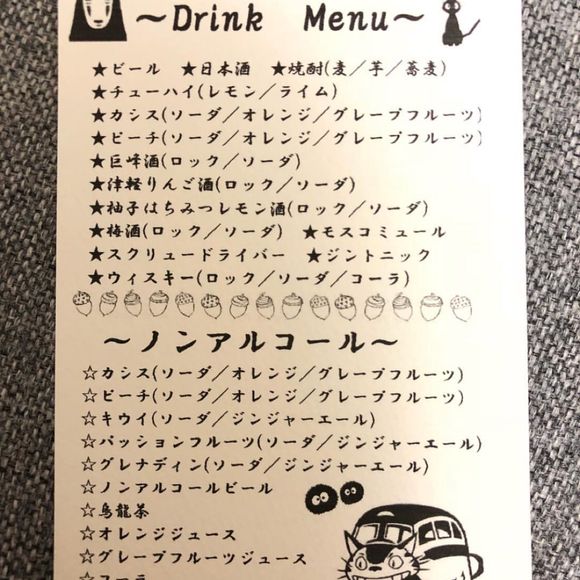 ～Drink Menu～
★ビール ★日本酒 ★焼酎(麦／芋／蕎麦)
★チューハイ(レモン／ライム)
★カシス(ソーダ／オレンジ／グレープフルーツ)
★ピーチ(ソーダ／オレンジ／グレープフルーツ)
★巨峰酒(ロック／ソーダ)
★津軽りんご酒(ロック／ソーダ)
★柚子はちみつレモン酒(ロック／ソーダ)
★梅酒(ロック／ソーダ) ★モスコミュール
★スクリュードライバー ★ジントニック
★ウィスキー(ロック／ソーダ／コーラ)
～ノンアルコール～
☆カシス(ソーダ／オレンジ／グレープフルーツ)
☆ピーチ(ソーダ／オレンジ／グレープフルーツ)
☆キウイ(ソーダ／ジンジャーエール)
☆パッションフルーツ(ソーダ／ジンジャーエール)
☆グレナディン(ソーダ／ジンジャーエール)
☆ノンアルコールビール
☆烏龍茶
☆オレンジジュース
☆グレープフルーツジュース
☆コーラ